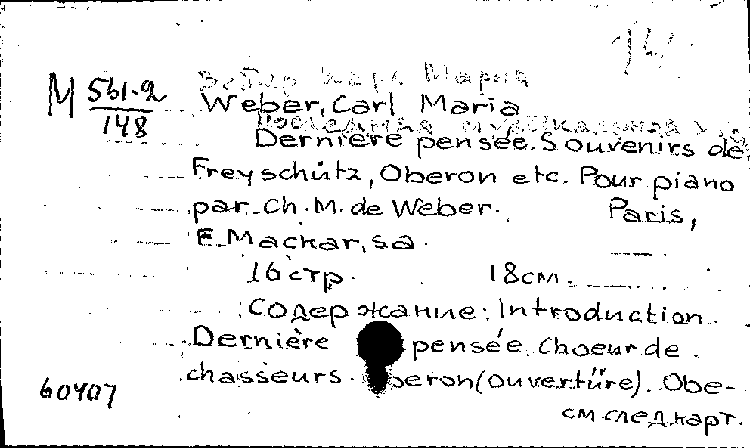 14
Вебер Карл Мария
М 561-2
148
Weber, Carl Maria
Последняя музыкальная
Dernière pensée. Souvenirs de
Freyschütz, Oberon etc. Pour piano
par Ch. M. de Weber. Paris,
E. Mackar, sa.
16 стр. 18 см.
Содержание: Introduction.
Dernière pensée. Choeur de
chasseurs. beron (ouvertüre). Obe-
60407
см след карт.